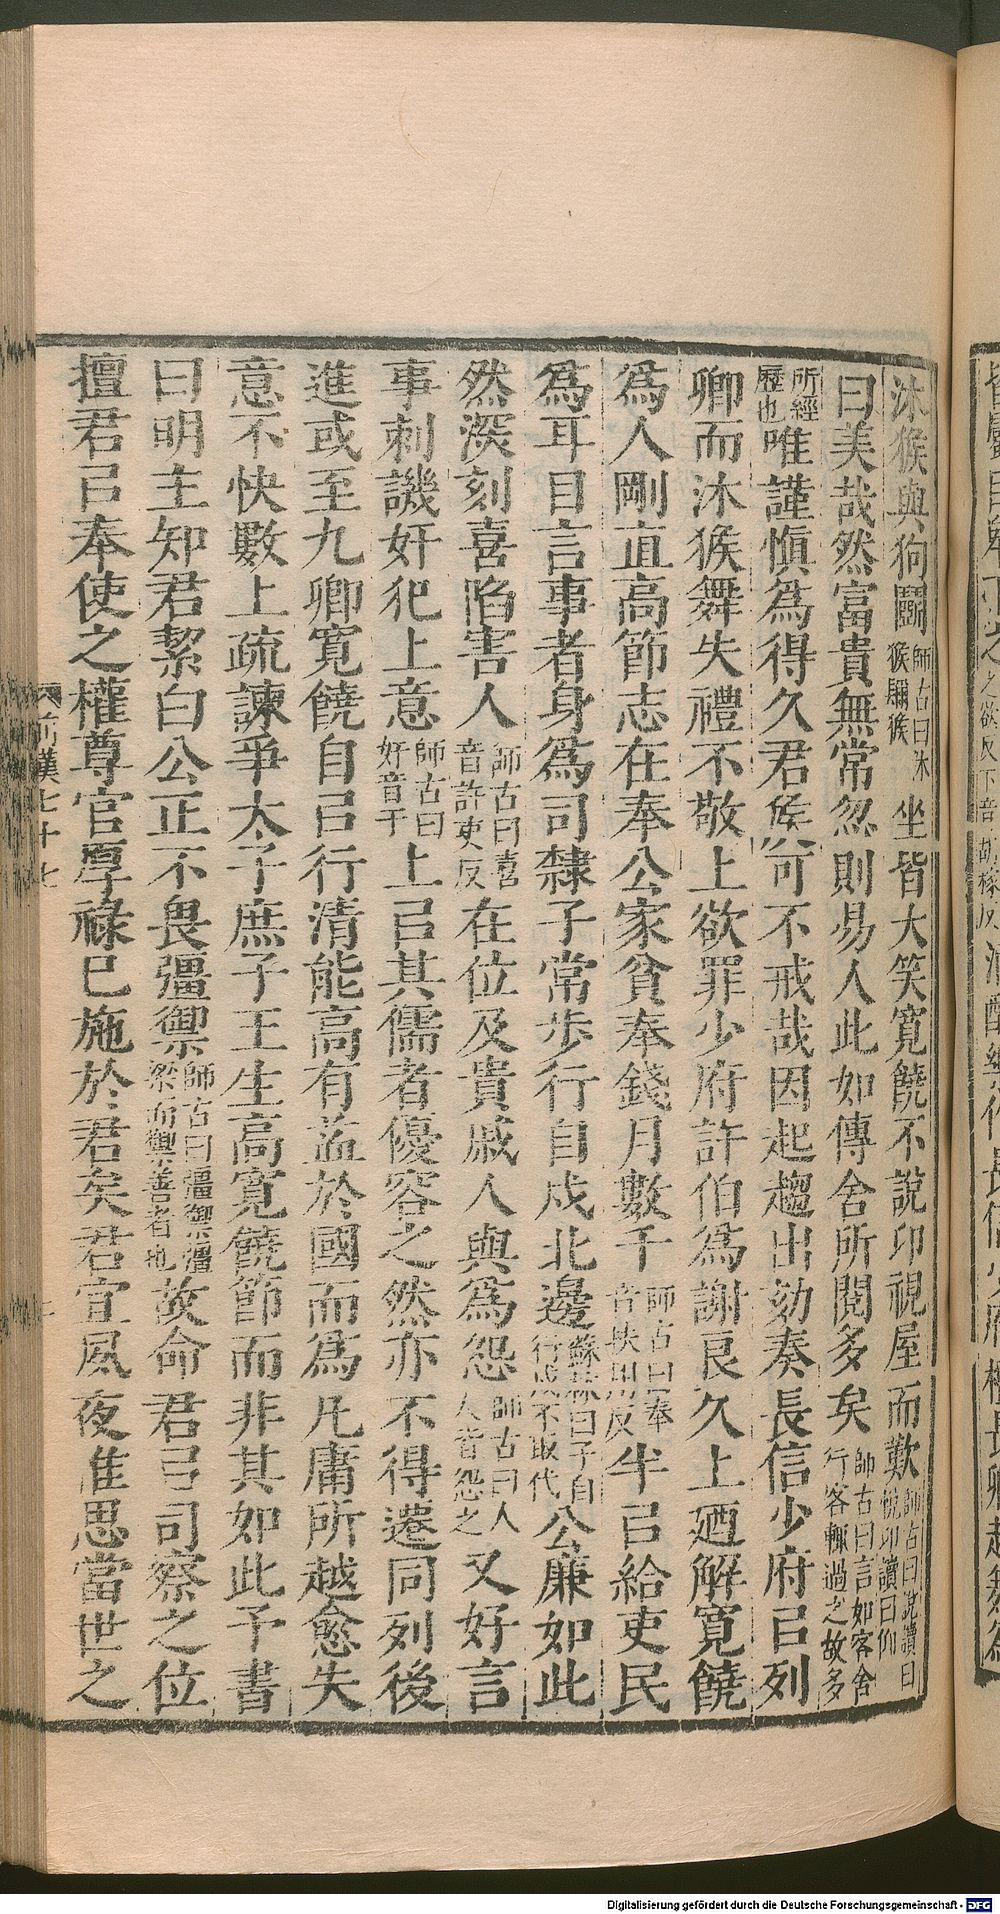 沐猴與狗鬭師古曰沐猴獼猴坐皆大笑寬饒不說卬視屋而歎師古曰說讀曰悅卬讀曰仰
曰美哉然富貴無常忽則易人此如傳舍所閱多矣師古曰言如客舍行客輒過之故多
所經歷也唯謹慎爲得久君侯可不戒哉因起趨出劾奏長信少府㠯列
卿而沐猴舞失禮不敬上欲罪少府許伯爲謝良久上廼解寬饒
爲人剛直高節志在奉公家貧奉錢月數千師古曰奉音扶用反半㠯給吏民
爲耳目言事者身爲司隸子常步行自戍北邊蘇林曰子自行戍不取代公廉如此
然深刻喜陷害人師古曰喜音許吏反在位及貴戚人與爲怨師古曰人人皆怨之又好言
事刺譏奸犯上意師古曰奸音干上㠯其儒者優容之然亦不得遷同列後
進或至九卿寬饒自㠯行清能高有益於國而爲凡庸所越愈失
意不快數上疏諫爭太子庶子王生高寬饒節而非其如此予書
曰明主知君絜白公正不畏彊禦師古曰彊禦彊梁而禦善者也故命君㠯司察之位
擅君㠯奉使之權尊官厚祿已施於君矣君宜夙夜惟思當世之
前漢七十七
Digitalisierung gefördert durch die Deutsche Forschungsgemeinschaft - DFG